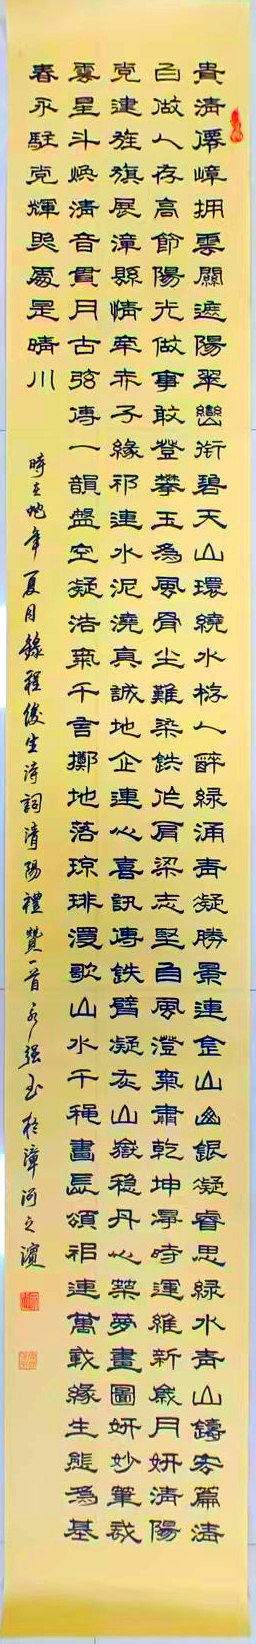 貴清僊嶂拥雲關遮陽翠巒銜碧天山環繞水榜人醉緑涌青凝勝景連金山幽銀凝睿思緑水青山鑄宏篇清
白做人存高節陽光做事敢登攀玉為風骨尘難染鉄作肩梁志堅自風澄氣肅乾坤淨時運維新歲月妍清陽
党建旌旗展漳縣情牽赤子緣祁連水泥澆真誠地企連心喜訊傳鉄臂凝志山嶽穩丹心築夢畫圖妍妙筆裁
雲星斗煥清音貫月古弦傳一韻盤空凝浩氣千言擲地落琼琲漫歌山水千種畫長頌祁連萬載緣生態為基
春永駐党輝照處是晴川
時在蛇年夏月錄程俊生詩詞清陽禮贊一首永強書於漳河之濱